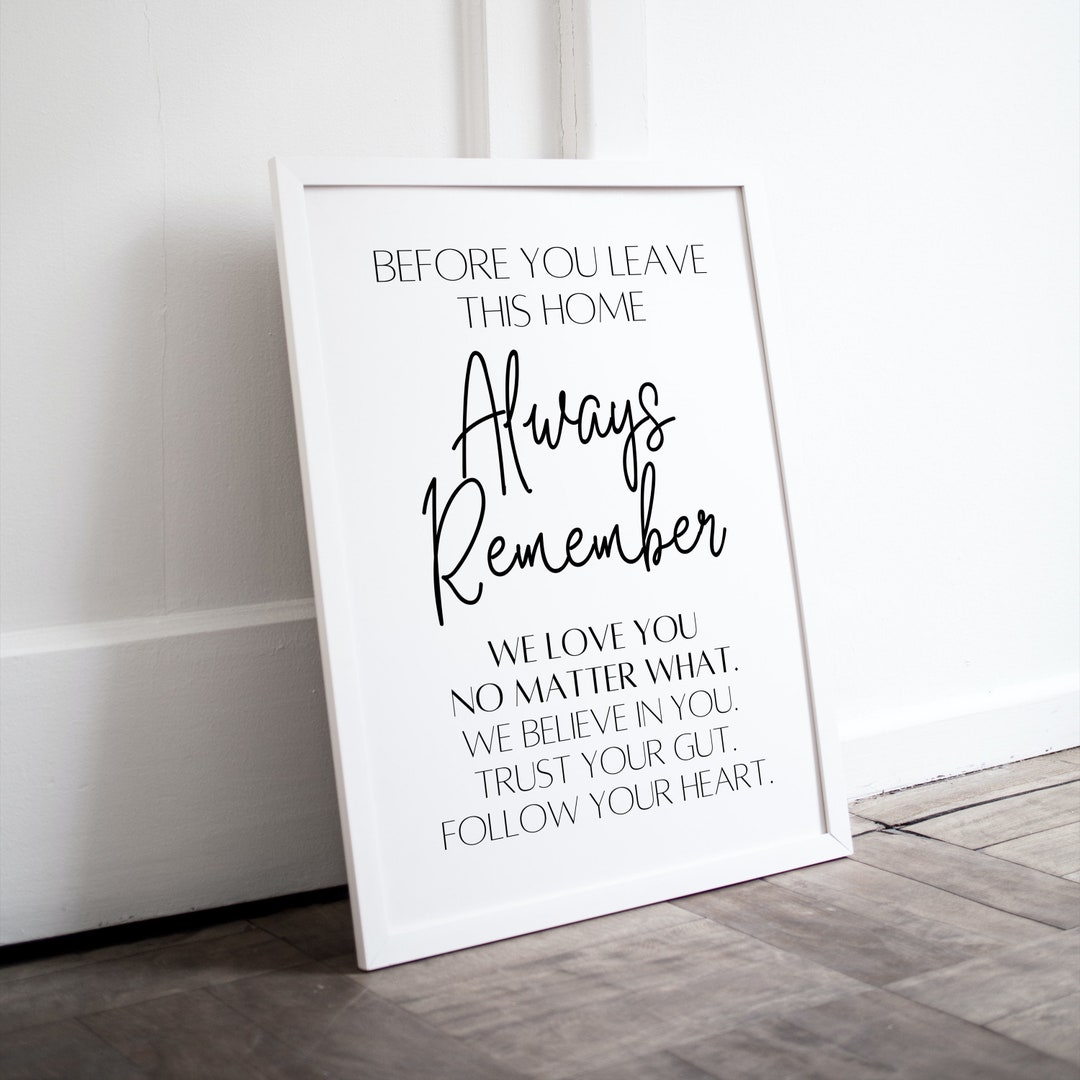 BEFORE YOU LEAVE
THIS HOME
Always
Remember
WE LOVE YOU
NO MATTER WHAT.
WE BELIEVE IN YOU.
TRUST YOUR GUT.
FOLLOW YOUR HEART.